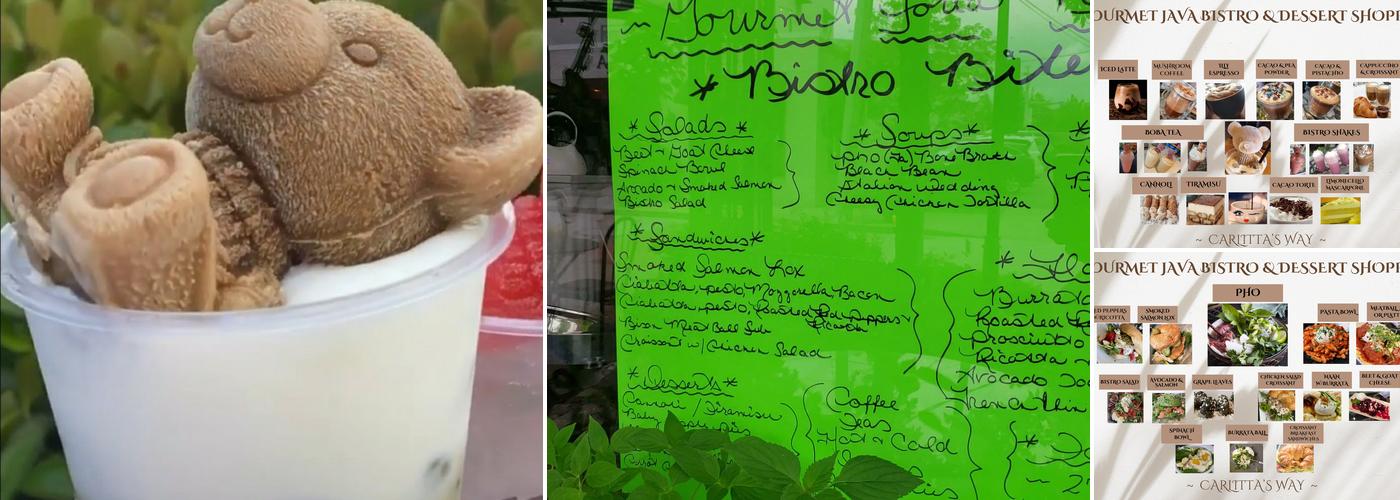 Gourmet Food
* Bistro Bite
* Salads *
Beet & Goat Cheese
Spinach Bowl
Avocado & Smoked Salmon
Bistro Salad
* Soups *
Pho (Fa) Bone Broth
Black Bean
Italian Wedding
Creesy Chicken Tortilla
* Sandwiches *
Smoked Salmon Lox
Ciabatta, pesto, Mozzarella, Bacon
Ciabatta, pesto, Roasted Red Peppers &
Ricotta
Bison Meat Ball Sub
Croissant w/ Chicken Salad
Burrata
Roasted
Prosciutto
Ricotta
Avocado
French
* Desserts *
Cannoli / Tiramisu
Baby
Coffee
Teas
Hot & Cold
OURMET JAVA BISTRO & DESSERT SHOP
ICED LATTE
MUSHROOM
COFFEE
ILLY
ESPRESSO
CACAO & PEA
POWDER
CACAO &
PISTACHIO
CAPPUCCINO
& CROISSANT
BOBA TEA
BISTRO SHAKES
CANNOLI
TIRAMISU
CACAO TORTE
LIMONCELLO
MASCARPONE
~ CARLITTA'S WAY ~
OURMET JAVA BISTRO & DESSERT SHOP
PHO
ED PEPPERS
RICOTTA
SMOKED
SALMON LOX
PASTA BOWL
MEATBALL
OR PLATE
BISTRO SALAD
AVOCADO &
SALMON
GRAPE LEAVES
CHICKEN SALAD
CROISSANT
NAAN
W/BURRATA
BEET & GOAT
CHEESE
SPINACH
BOWL
BURRATA BALL
CROISSANT
BREAKFAST
SANDWICHES
~ CARLITTA'S WAY ~